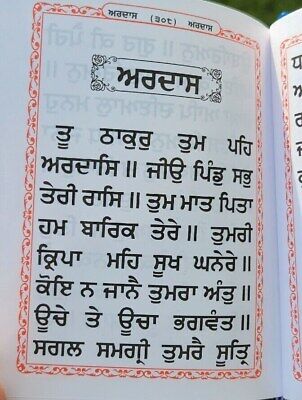 ਅਰਦਾਸ (੩੦੯) ਅਰਦਾਸ
ਅਰਦਾਸ
ਤੂ ਠਾਕੁਰੁ ਤੁਮ ਪਹਿ
ਅਰਦਾਸਿ॥ ਜੀਉ ਪਿੰਡੁ ਸਭੁ
ਤੇਰੀ ਰਾਸਿ॥ ਤੁਮ ਮਾਤ ਪਿਤਾ
ਹਮ ਬਾਰਿਕ ਤੇਰੇ॥ ਤੁਮਰੀ
ਕ੍ਰਿਪਾ ਮਹਿ ਸੂਖ ਘਨੇਰੇ॥
ਕੋਇ ਨ ਜਾਨੈ ਤੁਮਰਾ ਅੰਤੁ॥
ਊਚੇ ਤੇ ਊਚਾ ਭਗਵੰਤ॥
ਸਗਲ ਸਮਗ੍ਰੀ ਤੁਮਰੈ ਸੂਤ੍ਰਿ